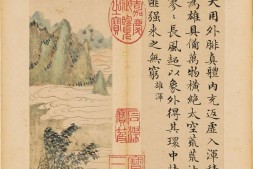 大用外腓真體內充返虛入渾積
為雄具備萬物橫絕太空荒荒油
寥〻長風超以象外得其環中持
匪強來之無窮
雄渾
嘉慶御覽之寶
石渠寶笈